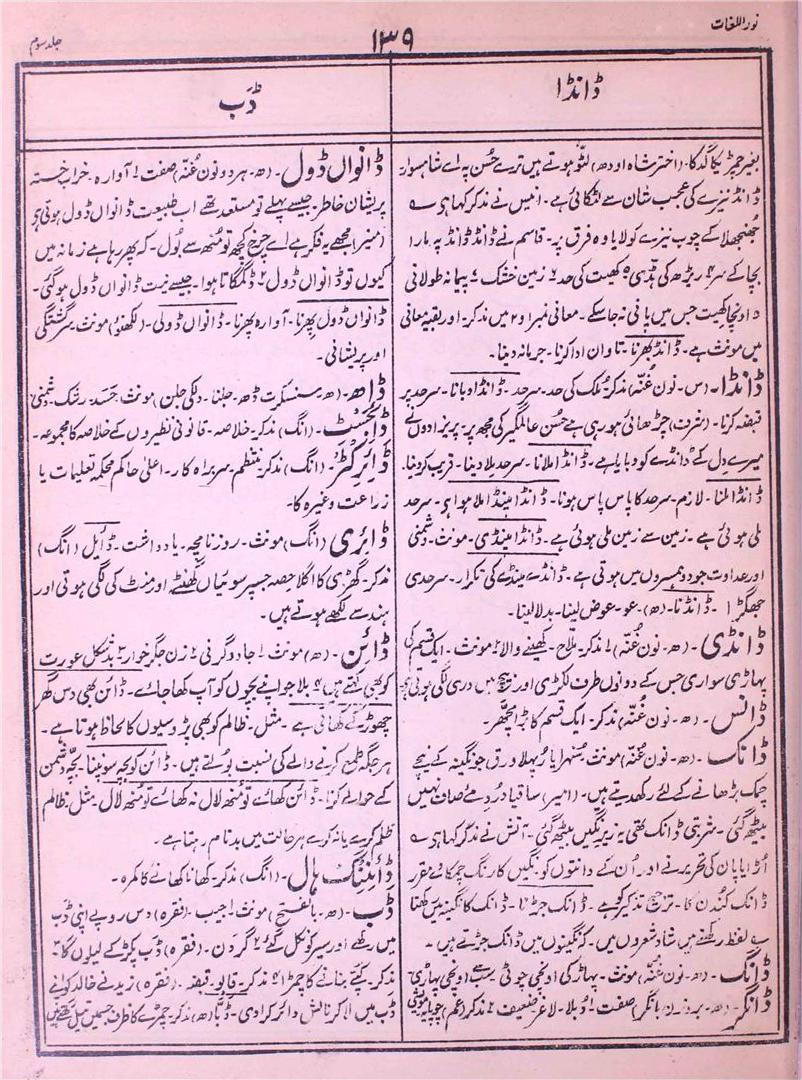 نوراللغات
۱۳۹
جلد سوم
ڈانڈا
ڈَب
بغیر چمڑیکا گدکا۔ (اختر شاہ اودھ) لٹّو ہوتے ہیں ترے حُسن پہ اے شاہسوار
ڈانڈ نیزے کی عجب شان سے لٹکائی ہے۔ انیس نے مذکر کہا ہے ؎
جھنجھلا کے چوب نیزے کو لایا وہ فرق پر۔ قاسم نے ڈانڈ ڈانڈ پہ مارا
بچا کے سر ۴ ریڑھ کی ہڈی ۵ کھیت کی حد ۶ زمین خشک ۷ پیمانہ طولانی
۸ اونچا کھیت جس میں پانی نہ جاسکے۔ معانی نمبر ۱ و ۲ میں مذکر۔ اور بقیہ معانی
میں مونث ہے۔ ڈانڈ بھرنا۔ تاوان ادا کرنا۔ جرمانہ دینا۔
ڈانڈا۔ (س۔ نون غُنّہ) مذکر۔ مُلک کی حد۔ سرحد۔ ڈانڈا دبانا۔ سرحد پر
قبضہ کرنا۔ (شرف) چڑھائی ہو رہی ہے حُسن عالمگیر کی مجھ پر۔ پریزادوں نے
میرے دل کے ڈانڈے کو دبایا ہے۔ ڈانڈا ملانا۔ سرحد ملا دینا۔ قریب کردینا۔
ڈانڈا ملنا۔ لازم۔ سرحد کا پاس پاس ہونا۔ ڈانڈا مینڈا ملا ہوا ہے۔ سرحد
ملی ہوئی ہے۔ زمین سے زمین ملی ہوئی ہے۔ ڈانڈا مینڈی۔ مونث۔ دشمنی
اور عداوت جو دو ہمسروں میں ہوتی ہے۔ ڈانڈے مینڈے کی تکرار۔ سرحدی
جھگڑا۔ ڈانڈنا۔ (ھ) عو۔ عوض لینا۔ بدلا لینا۔
ڈانڈی۔ (ھ۔ نون غُنّہ) ۱ مذکر۔ ملاح۔ کھینے والا ۲ مونث۔ ایک قسم کی
پہاڑی سواری جس کے دونوں طرف لکڑی اور بیچ میں دری لگی ہوتی ہے
ڈانس۔ (ھ۔ نون غُنّہ) مذکر۔ ایک قسم کا بڑا مچھّر۔
ڈانک۔ (ھ۔ نون غُنّہ) مونث۔ سُنہرا یا رُپہلا ورق جو نگینہ کے نیچے
چمک بڑھانے کے لئے رکھدیتے ہیں۔ (امیر) ساقیا دُردِ مئے صاف نہیں
بیٹھ گئی۔ شربتی ڈانک تھی یہ زیر نگیں بیٹھ گئی۔ آتش نے مذکر کہا ہے ؎
اُڑایا پان کی تحریر نے اور اُن کے دانتوں کو نگیں کا رنگ چمکائے مقرر
ڈانک کُندن کا۔ ترجیح تذکیر کو ہے۔ ڈانک جڑنا۔ ڈانک کا نگینہ میں رکھنا
یہ لفظ رکھتے ہیں شاد شعروں میں۔ کہ نگینوں میں ڈانک جڑتے ہیں۔
ڈانگ۔ (ھ۔ نون غُنّہ) مونث۔ پہاڑ کی اونچی چوٹی سب سے اونچی پہاڑی
ڈانگر (ھ۔ بروزن بانگر) صفت ۱ دُبلا۔ لاغر۔ ضعیف ۲ مذکر (عم) چوپایہ مویشی
ڈانواں ڈول۔ (ھ۔ ہر دو نون غُنّہ) صفت ۱ آوارہ۔ خراب خستہ
پریشان خاطر۔ جیسے پہلے تو مستعد تھے اب طبیعت ڈانواں ڈول ہوتی ہے
(منیر) مجھے یہ فکر ہے اے چرخ کچھ تو مُنھ سے بُول۔ کہ پھر رہا ہے زمانہ میں
کیوں تو ڈانواں ڈول ۲ ڈگمگاتا ہوا۔ جیسے نیت ڈانواں ڈول ہوگئی۔
ڈانواں ڈول پھرنا۔ آوارہ پھرنا۔ ڈانواں ڈولی۔ (لکھنؤ) مونث۔ سرگشتگی
اور پریشانی۔
ڈاھ۔ (ھ۔ سنسکرت ڈھ۔ جلنا۔ دل کی جلن) مونث۔ حَسَد۔ رشک۔ دشمنی
ڈائجسٹ۔ (انگ) مذکر۔ خلاصہ۔ قانونی نظیروں کے خلاصہ کا مجموعہ۔
ڈائرکٹر۔ (انگ) مذکر۔ منتظم۔ سربراہ کار۔ اعلیٰ حاکم محکمہ تعلیمات یا
زراعت وغیرہ کا۔
ڈائری (انگ) مونث۔ روزنامچہ۔ یادداشت۔ ڈائل (انگ)
مذکر۔ گھڑی کا اگلا حصہ جسپر سوئیاں گھنٹے اور منٹ کی لگی ہوتی اور
ہندسے لکھے ہوتے ہیں۔
ڈائن۔ (ھ) مونث ۱ جادوگرنی ۲ زن جگر خوار ۳ بدشکل عورت
کو بھی کہتے ہیں ۴ بلا جو اپنے بچوں کو آپ کھا جائے۔ ڈائن بھی دس گھر
چھوڑ کے کھاتی ہے۔ مثل۔ ظالم کو بھی پڑوسیوں کا لحاظ ہوتا ہے۔
ہر جگہ طمع کرنے والے کی نسبت بولتے ہیں۔ ڈائن کو بچّہ سونپنا۔ بچّہ دشمن
کے حوالے کرنا۔ ڈائن کھائے تو مُنھ لال نہ کھائے تو مُنھ لال۔ مثل۔ ظالم
ظلم کرے یا نہ کرے ہر حالت میں بدنام رہتا ہے۔
ڈائننگ ہال۔ (انگ) مذکر۔ کھانا کھانے کا کمرہ۔
ڈَب۔ (ھ۔ بالفتح) مونث ۱ جیب۔ (فقرہ) دس روپے اپنی ڈب
میں رکھے اور سیر کو نکل گئے ۲ گردن۔ (فقرہ) ڈب پکڑ کے لیلوں گا ۳
مذکر۔ کپّے بنانے کا چمڑا ۴ مذکر۔ قابو۔ قبضہ۔ (فقرہ) زید نے خالد کو اپنے
ڈب میں لاکر نالش دائر کرادی۔ ڈبّا (ھ) مذکر۔ چمڑے کا ظرف جسمیں تیل رکھتے ہیں